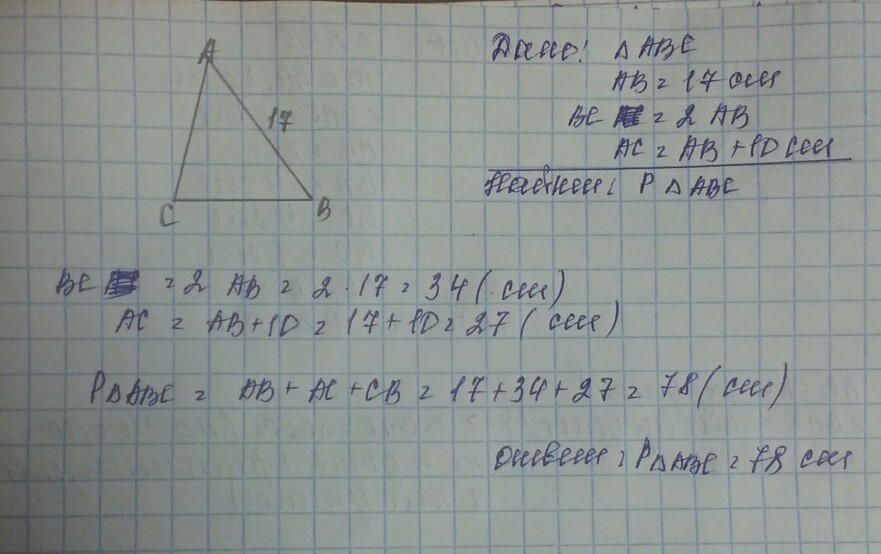 A
17
C
B
Дано: △ ABC
AB = 17 см
BC = 2 AB
AC = AB + 10 см
Найти: P △ ABC
BC = 2 AB = 2 · 17 = 34 (см)
AC = AB + 10 = 17 + 10 = 27 (см)
P△ABC = AB + AC + CB = 17 + 34 + 27 = 78 (см)
ответ: P△ABC = 78 см